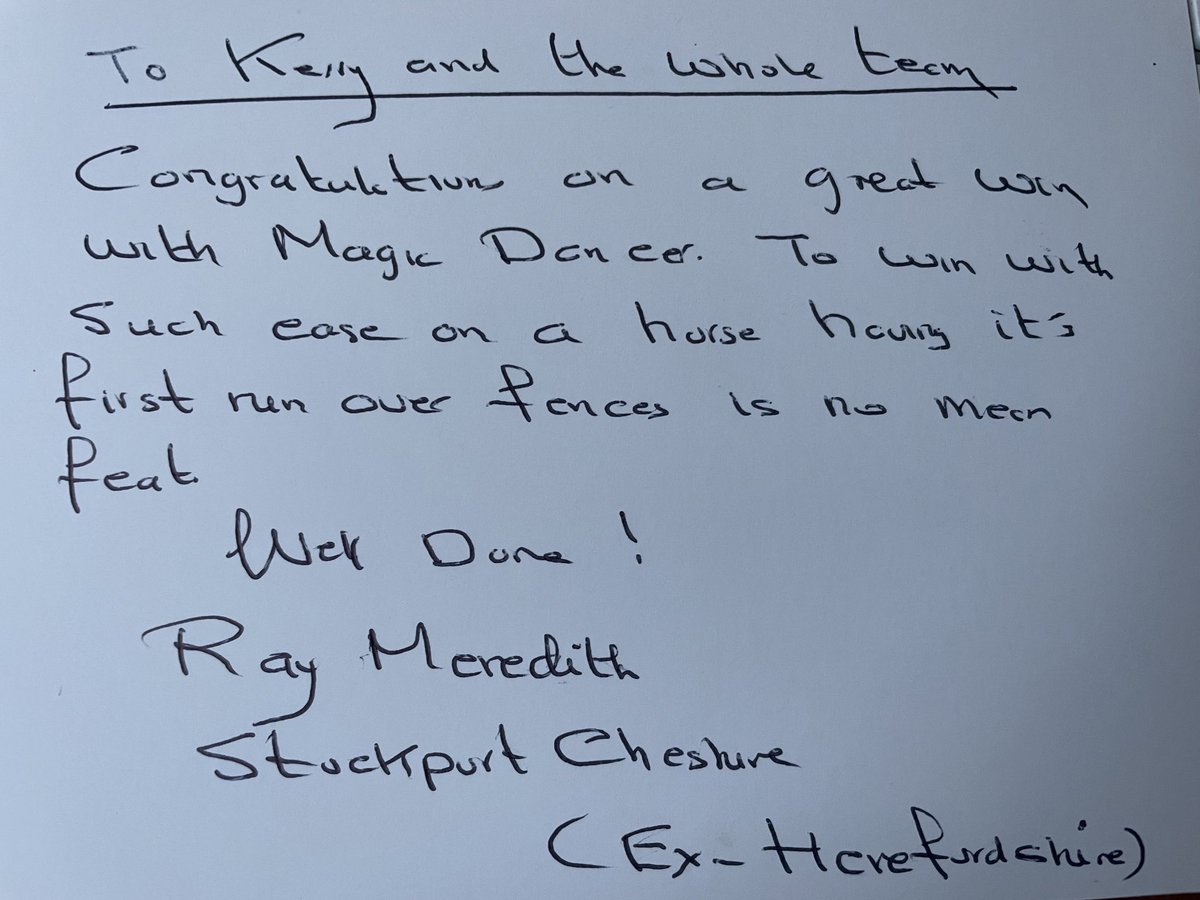 To Kerry and the whole team
Congratulations on a great win
with Magic Dancer. To win with
such ease on a horse having it's
first run over fences is no mean
feat.
Well Done !
Ray Meredith
Stockport Cheshire
(Ex-Herefordshire)